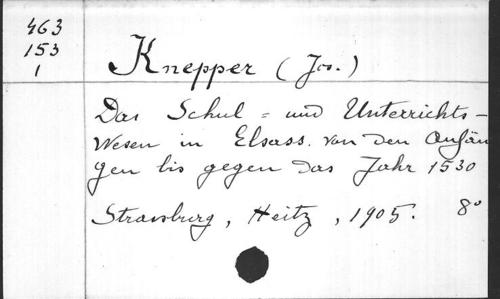 463
153
1
Knepper (Jos.)
Das Schul = und Unterrichts-
Wesen in Elsass. Von den Anfän
gen bis gegen das Jahr 1530
Strassburg, Heitz, 1905. 8°